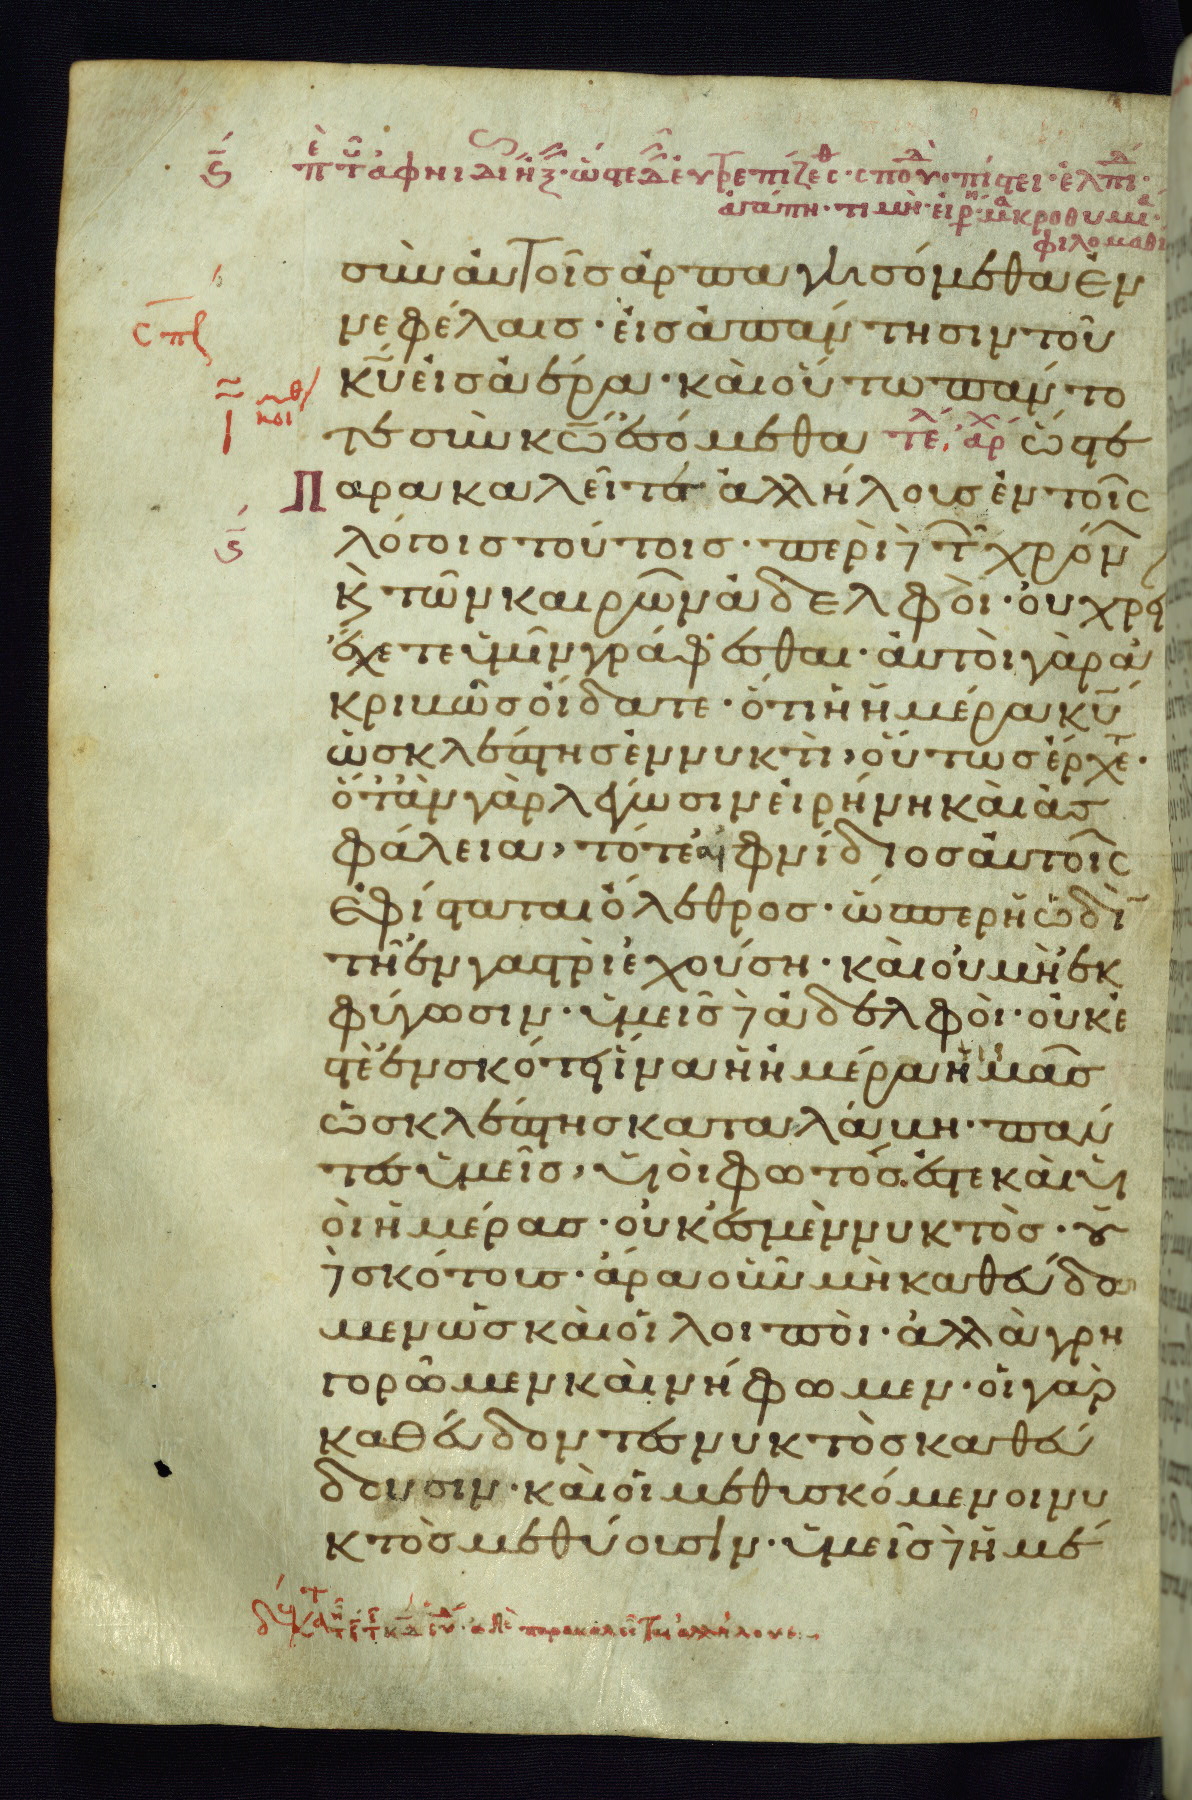 σὺν αὐτοῖσ ἁρπαγισόμεθα ἐν
νεφέλαισ · εἰσ ἀπάντησιν τοῦ
κ̅υ̅ εἰσ ἀέρα · καὶ οὕτω πάντο
τε σὺν κ̅ω̅ ἐσόμεθα τε, ἀρ ὡστε
Παρακαλεῖτε ἀλλήλουσ ἐν τοῖσ
λόγοισ τούτοισ · περὶ δὲ τῶν χρόν
κ̀ τῶν καιρῶν ἀδελφοὶ · οὐ χρεί
ἔχετε ὑμῖν γράφεσθαι · αὐτοὶ γὰρ ἀ
κριβῶσ οἴδατε · ὅτι ἡ ἡμέρα κ̅υ̅
ὡσ κλέπτησ ἐν νυκτὶ, οὕτωσ ἔρχετ ·
ὅταν γὰρ λέγωσιν εἰρήνη καὶ ἀσ
φάλεια, τότε αἰφνίδιοσ αὐτοῖσ
ἐφίσταται ὄλεθροσ · ὥσπερ ἡ ὠδὶν
τῆ ἐν γαστρὶ ἐχούση · καὶ οὐ μὴ ἐκ
φύγωσιν · ὑμεῖσ δὲ ἀδελφοὶ · οὐκ ἐ
στὲ ἐν σκότει ἵνα ἡ ἡμέρα ἡμᾶσ
ὡσ κλέπτησ καταλάβη · πάν
τεσ ὑμεῖσ, υἱοὶ φωτόσ ἐστε καὶ υἱ
οὶ ἡμέρασ · οὐκ ἐσμὲν νυκτὸσ · οὐ
δὲ σκότουσ · ἄρα οὖν μὴ καθεύδω
μεν ὡσ καὶ οἱ λοιποὶ · ἀλλὰ γρη
γορῶμεν καὶ νήφωμεν · οἱ γὰρ
καθεύδοντεσ νυκτὸσ καθεύ
δουσιν · καὶ οἱ μεθυσκόμενοι νυ
κτὸσ μεθύουσιν · ὑμεῖσ δὲ ἡμέ